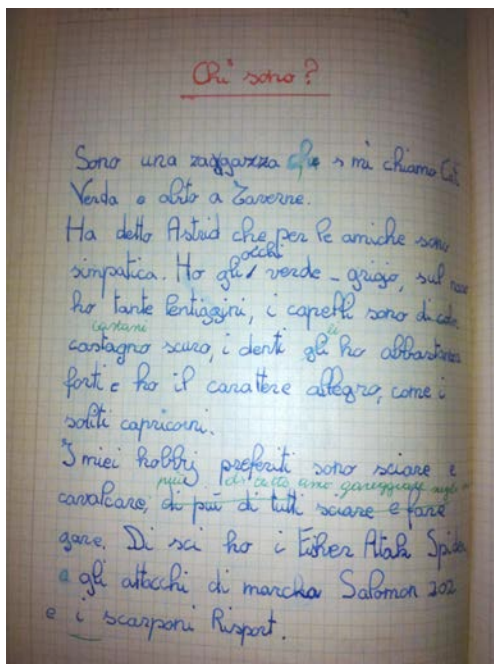 Chi sono?
Sono una raggazza che mi chiamo
Verda e abito a Taverne.
Ha detto Astrid che per le amiche sono
occhi
simpatica. Ho gli verde-grigio, sul naso
ho tante lentiggini, i capelli sono di color
castani li
castagno scuro, i denti gli ho abbastanza
forti e ho il carattere allegro, come i
soliti capricorni.
I miei hobbij preferiti sono sciare e
più di tutto amo gareggiare
cavalcare, di più di tutti sciare e fare
gare. Di sci ho i Fisher Atak Spider
e gli attacchi di marcha Salomon 202
e i scarponi Risport.